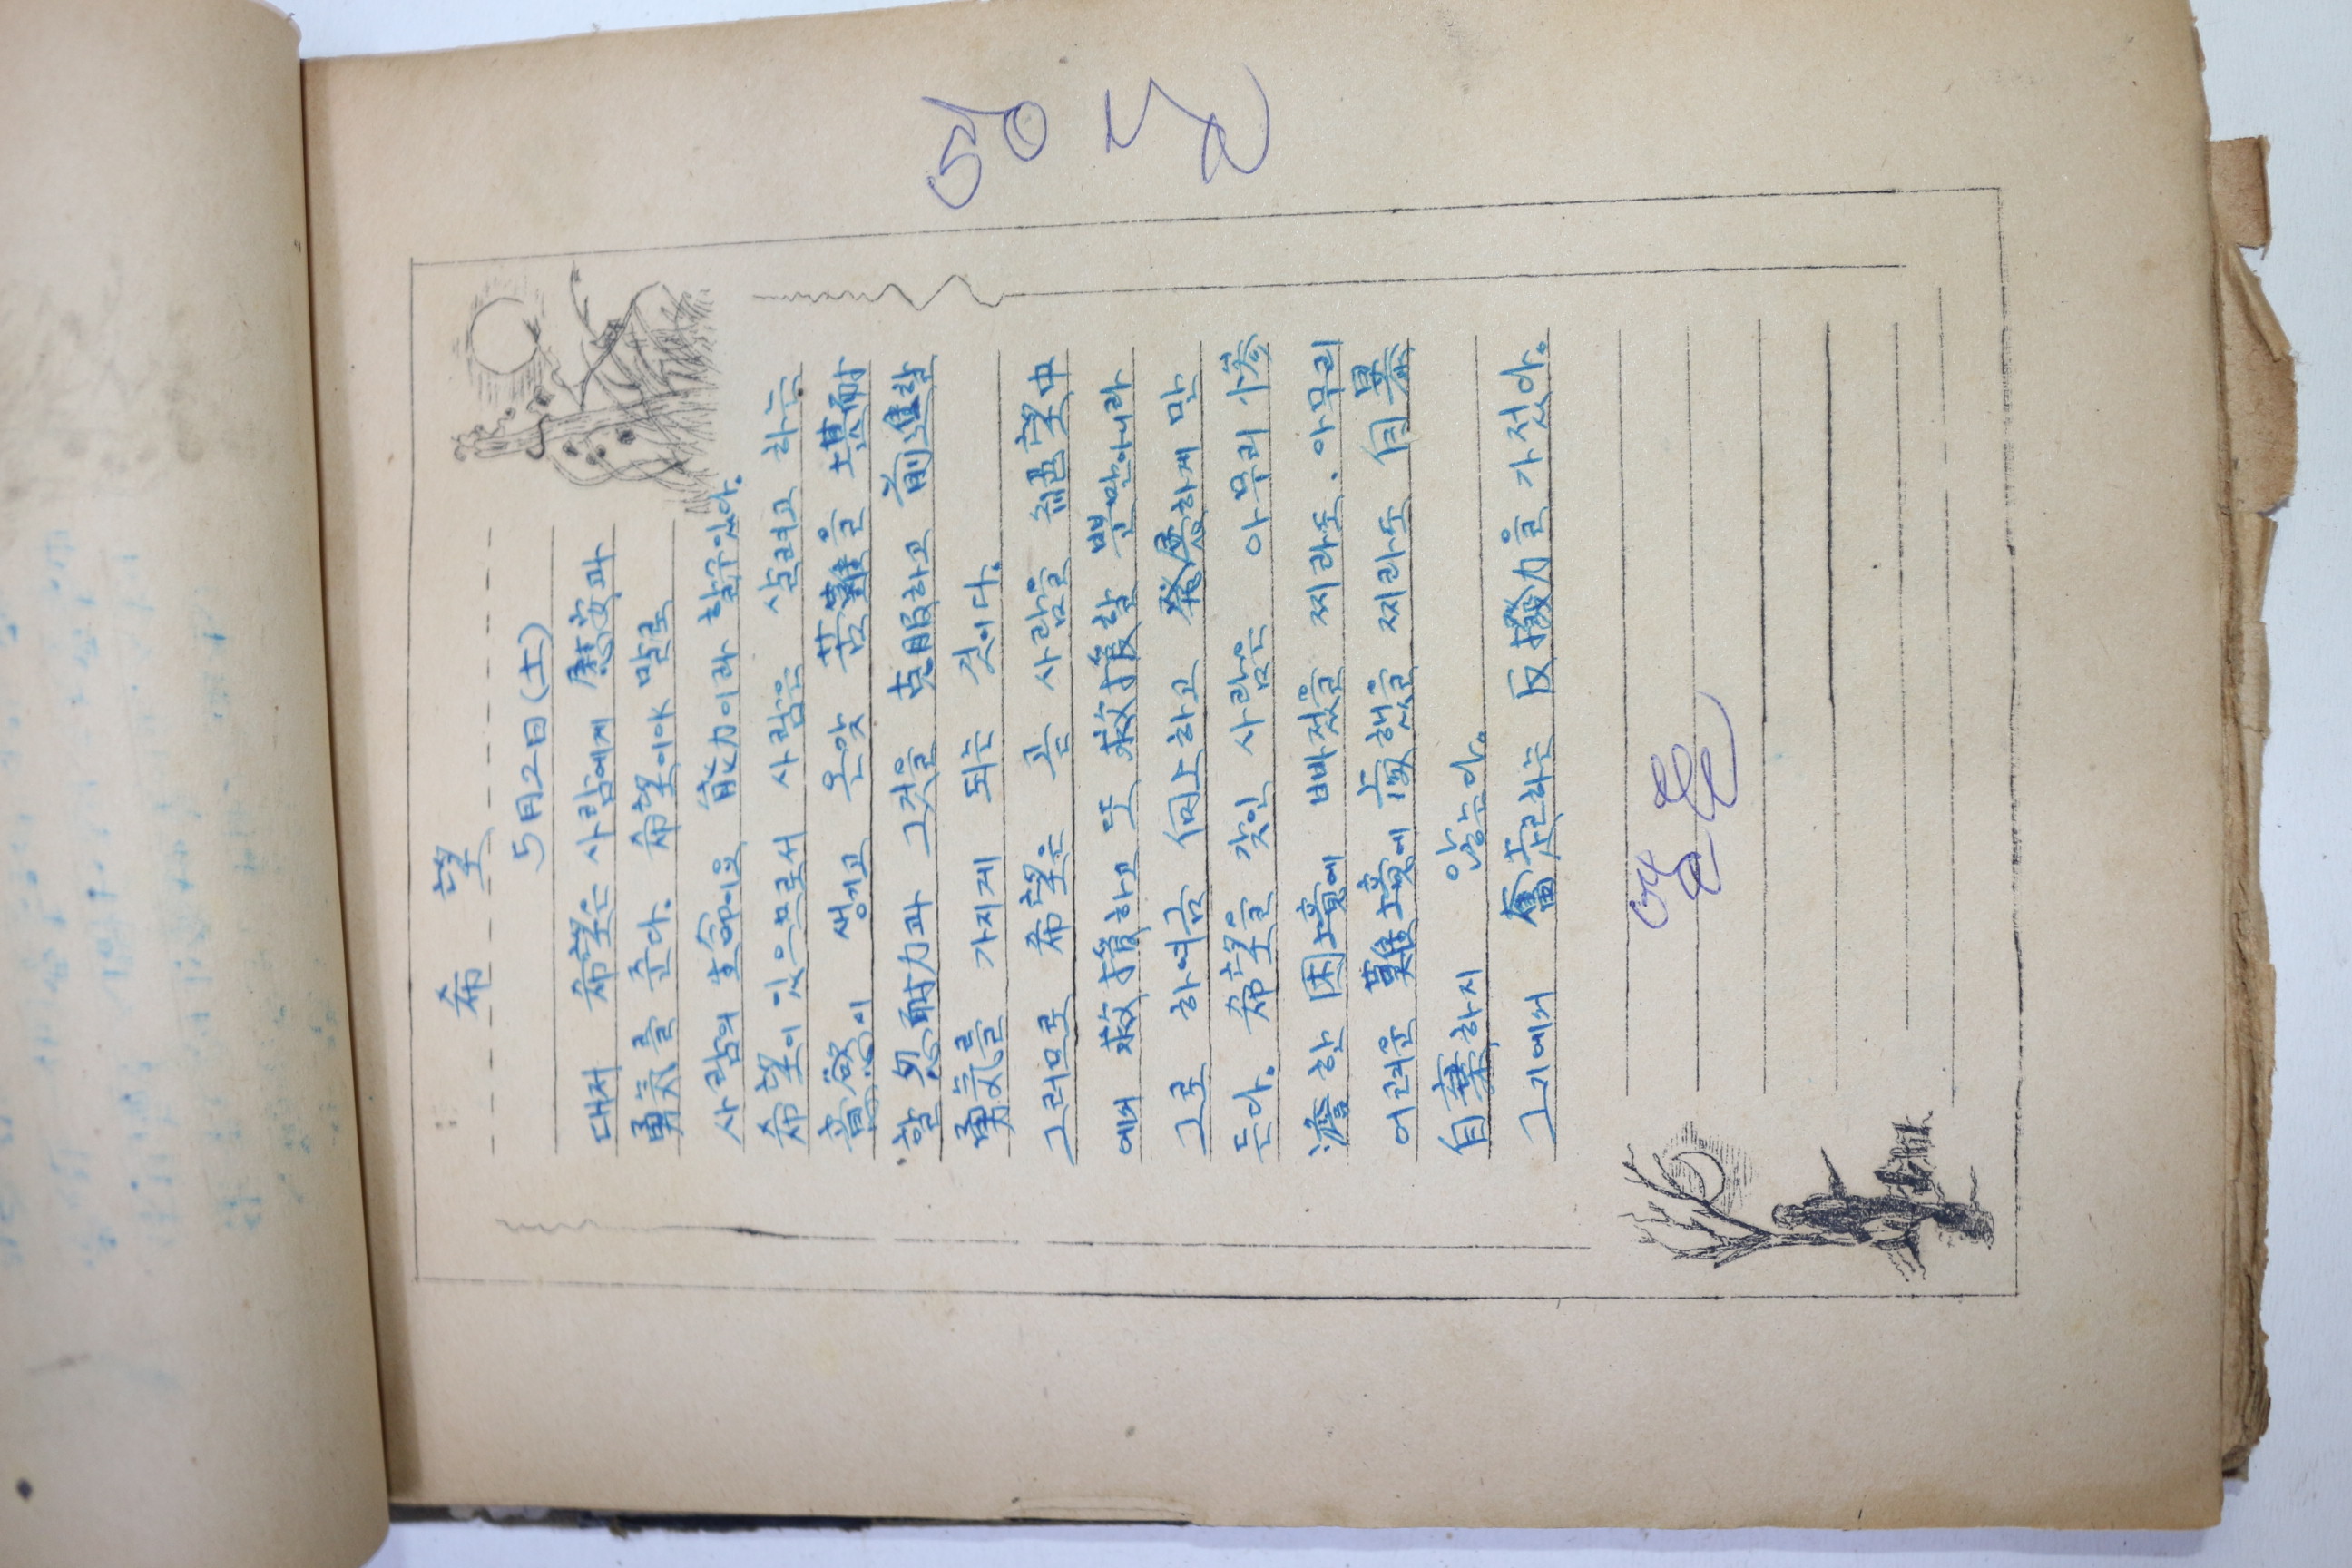 希望
5月2日(土)
대저 希望은 사람에게 慰安과
勇気를 준다. 希望이야 말로
사람의 生命이요 能力이라 할수있다.
希望이 있으므로서 사람은 살려고 하는
意慾이 생기고 온갖 苦難을 堪耐
할 忍耐力과 그것을 克服하고 前進할
勇気를 가지게 되는 것이다.
그러므로 希望은 곧 사람을 絕望中
에서 救援하고 또 救援할 뿐만아니라
그로 하여금 向上하고 発展하게 만
든다. 希望을 갖인 사람은 아무리 惨
澹한 困境에 빠졌을 찌라도. 아무리
어려운 難境에 處했을 찌라도 自暴
自棄하지 않는다.
그기에서 奮起하는 反撥力을 가졌다.